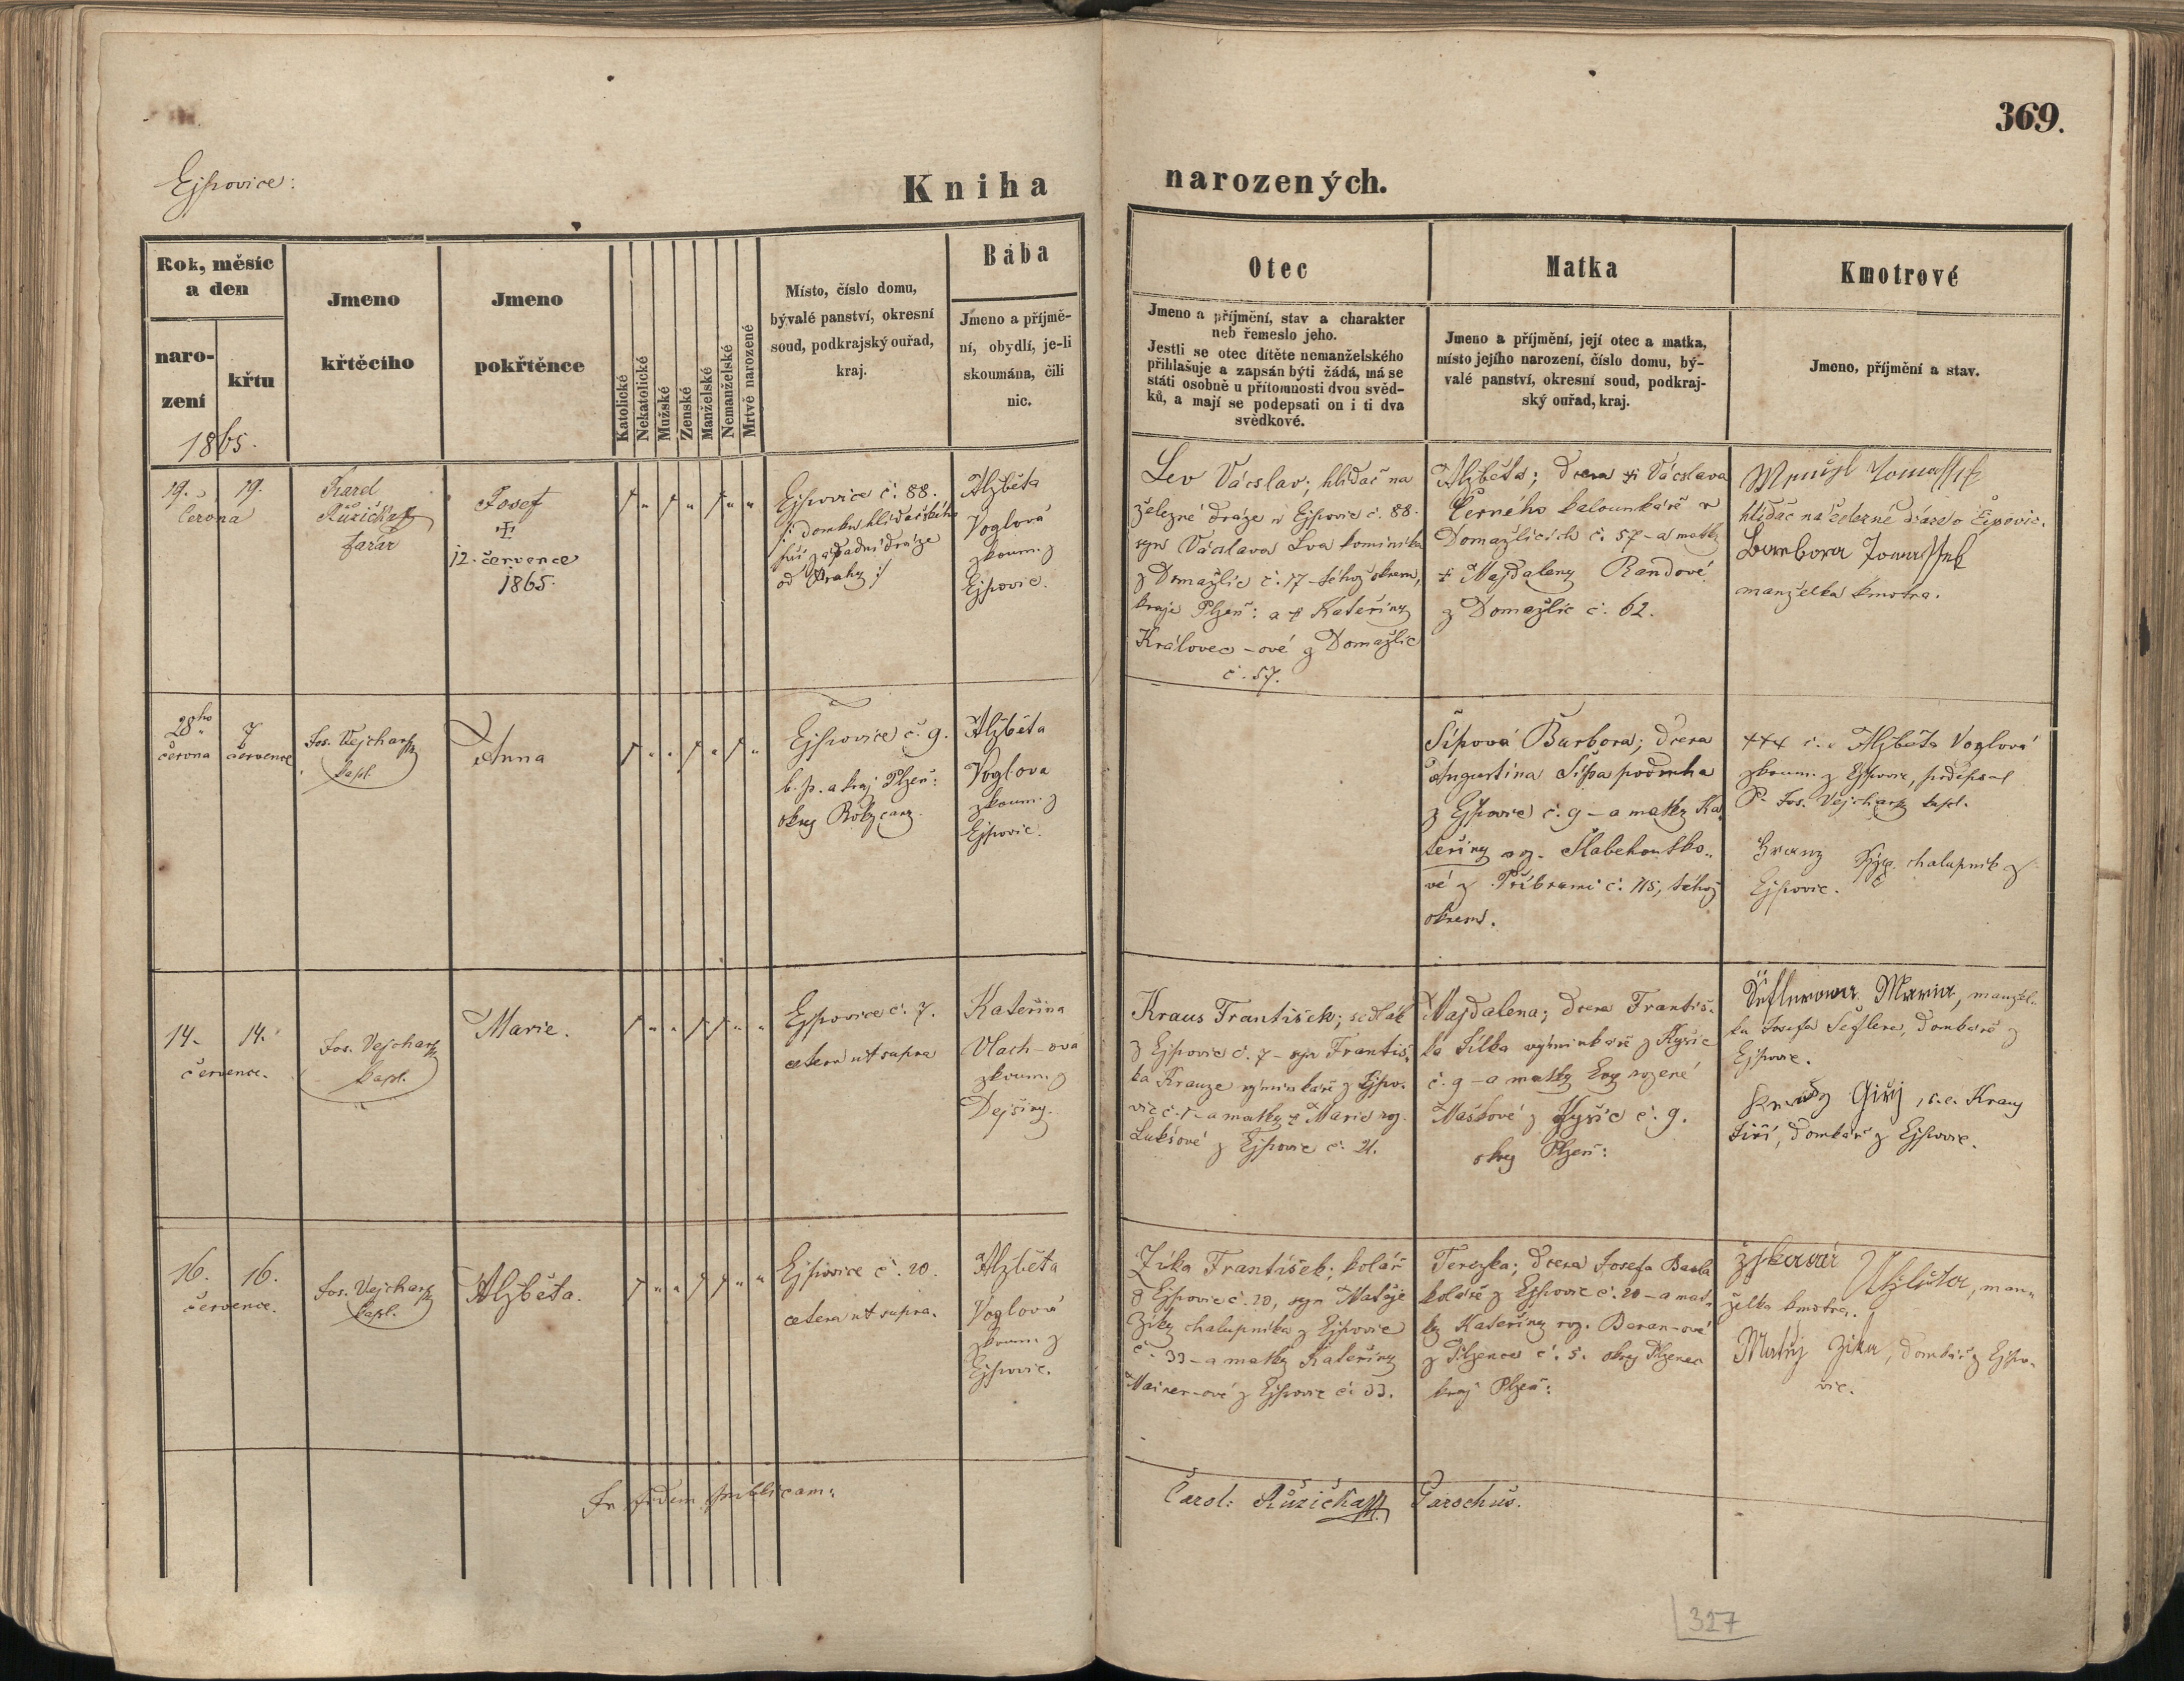 369.
Ejpovice:
Kniha narozených.
Rok, měsíc
a den
naro-
zení
křtu
1865.
Jmeno
křtěcího
Jmeno
pokřtěnce
Katolické
Nekatolické
Mužské
Ženské
Manželské
Nemanželské
Mrtvě narozené
Místo, číslo domu,
bývalé panství, okresní
soud, podkrajský ouřad,
kraj.
Bába
Jmeno a příjmě-
ní, obydlí, je-li
skoumána, čili
nic.
Otec
Jmeno a příjmění, stav a charakter
neb řemeslo jeho.
Jestli se otec dítěte nemanželského
přihlašuje a zapsán býti žádá, má se
státi osobně u přítomnosti dvou svěd-
ků, a mají se podepsati on i ti dva
svědkové.
Matka
Jmeno a příjmění, její otec a matka,
místo jejího narození, číslo domu, bý-
valé panství, okresní soud, podkraj-
ský ouřad, kraj.
Kmotrové
Jmeno, příjmění a stav.
19. 19.
června
Karel
Růžička
farář
Josef
12. července
1865.
Ejpovice č. 88.
od Prahy
Alžběta
Voglová
zkoum. z
Ejpovic.
Lev Václav; hlídač na
železné dráze v Ejpovic č. 88.
syn Václava Lva kominíka
z Domažlic č. 17 - téhož okresu,
kraje Plzeň: a † Kateřiny
Královec-ové z Domažlic
č. 57.
Alžběta; dcera † Václava
Černého kalounkáře v
Domažlicích č. 57 - a matky
† Majdaleny Randové
z Domažlic č. 62.
hlídač na železné dráze o Ejpovic.
Barbora
manželka kmotra.
28ho
června
7
července
Jos. Vejchar
kapl.
Anna
Ejpovice č. 9.
b. p. a kraj Plzeň:
okres Rokycany.
Alžběta
Voglova
zkoum. z
Ejpovic.
Šípová Barbora; dcera
Augustina Šípa podruha
z Ejpovic č. 9 - a matky Ka
teřiny roz.
vé z Příbrami č. 115, téhož
okresu.
+++ Alžběta Voglová
zkoum. z Ejpovic, podepsal
P. Jos. Vejchar kapl.
chalupník z
Ejpovic.
14. 14.
července.
Jos. Vejchar
kapl.
Marie.
Ejpovice č. 7.
cetera ut supra
Kateřina
Vlach-ova
zkoum. z
Dejšiny.
Kraus František; sedlák
z Ejpovic č. 7 - syn Františ-
ka Krauze výminkáře z Ejpo-
vic č. 7 - a matky † Marie roz.
Lukšové z Ejpovic č. 21.
Majdalena; dcera Františ-
ka Šilka výminkáře z Kyšic
č. 9 - a matky Evy rozené
Maškové z Kyšic č. 9.
okres Plzeň:
Maria, manžel-
ka Josefa Šeflera, domkáře z
Ejpovic.
Giřj, t.e. Kraus
Jiří, domkář z Ejpovic.
16. 16.
července.
Jos. Vejchar
kapl.
Alžběta.
Ejpovice č. 20.
cetera ut supra.
Alžběta
Voglová
zkoum. z
Ejpovic.
Zíka František; kolář
z Ejpovic č. 20, syn Matěje
Zíky chalupníka z Ejpovic
č. 33 - a matky Kateřiny
Mainer-ové z Ejpovic č. 33.
Terezka; dcera Josefa
koláře z Ejpovic č. 20 - a mat-
ky Kateřiny roz. Beran-ové
z Plzence č. 5. okres Plzenec
kraj Plzeň:
man-
želka kmotra.
Matěj Zika, domkář z Ejpo-
vic.
In fidem publicam:
Carol: Růžička Parochus.
327